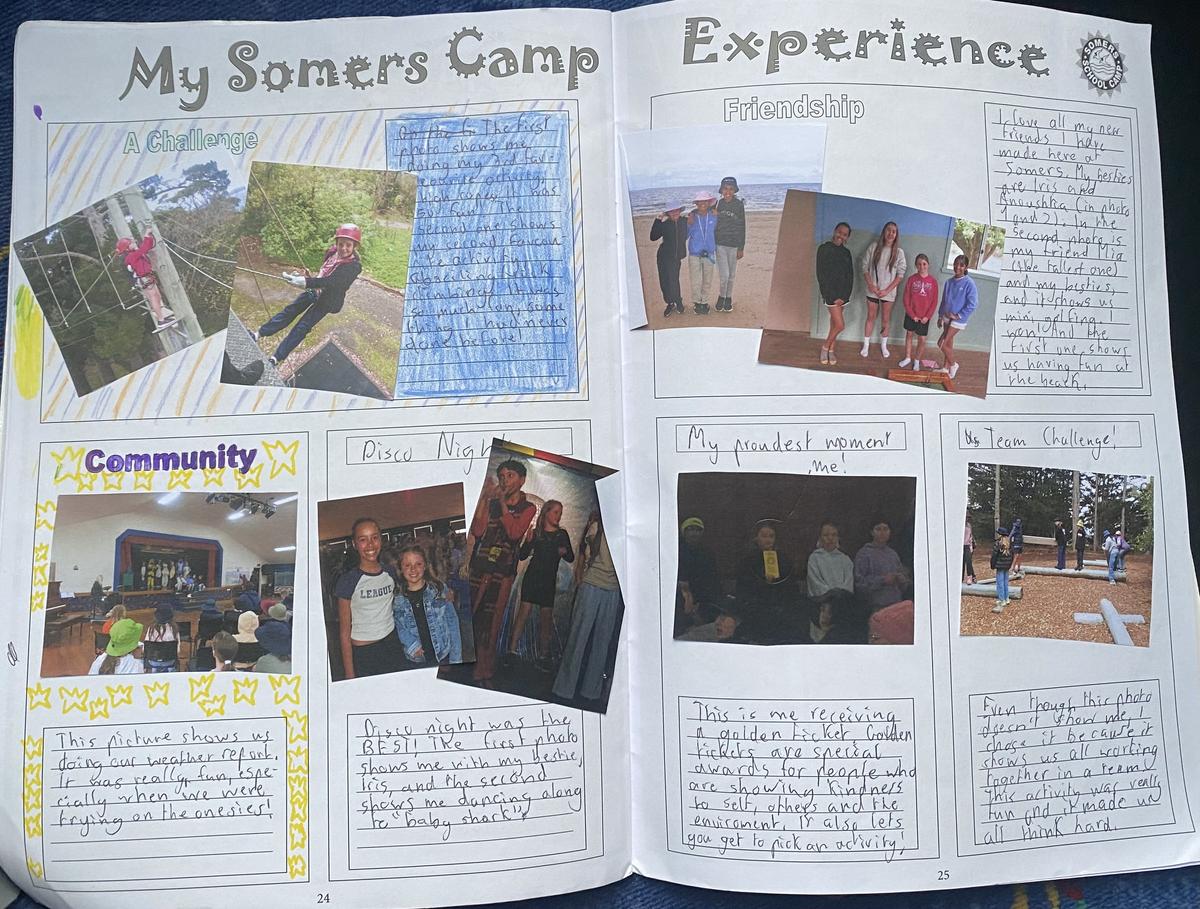 My Somers Camp Experience
SOMERS
SCHOOL CAMP
A Challenge
The first
photo shows me
doing my 3rd fav-
ourite activity,
high ropes. It was
so fun! The
second one shows
my second favour-
ite activity,
abseiling with K
so much for some
thing I had never
done before!
Friendship
I love all my new
friends I have
made here at
Somers. My besties
are Iris and
Anoushka (in photo
1 and 2). In the
second photo is
my friend Mia
(the tallest one)
and my besties,
and it shows us
mini golfing. I
won! And the
first one shows
us having fun at
the beach.
Community
This picture shows us
doing our weather report.
It was really fun, espe-
cially when we were
trying on the onesies!
Disco Night
LEAGUE
Disco night was the
BEST! The first photo
shows me with my bestie,
Iris, and the second
shows me dancing along
to "baby shark".
My proudest moment
me!
This is me receiving
a golden ticket. Golden
tickets are special
awards for people who
are showing kindness
to self, others and the
enviroment. It also lets
you get to pick an activity!
Team Challenge!
Even though this photo
doesn't show me, I
chose it because it
shows us all working
together in a team
This activity was really
fun and it made us
all think hard.
24
25